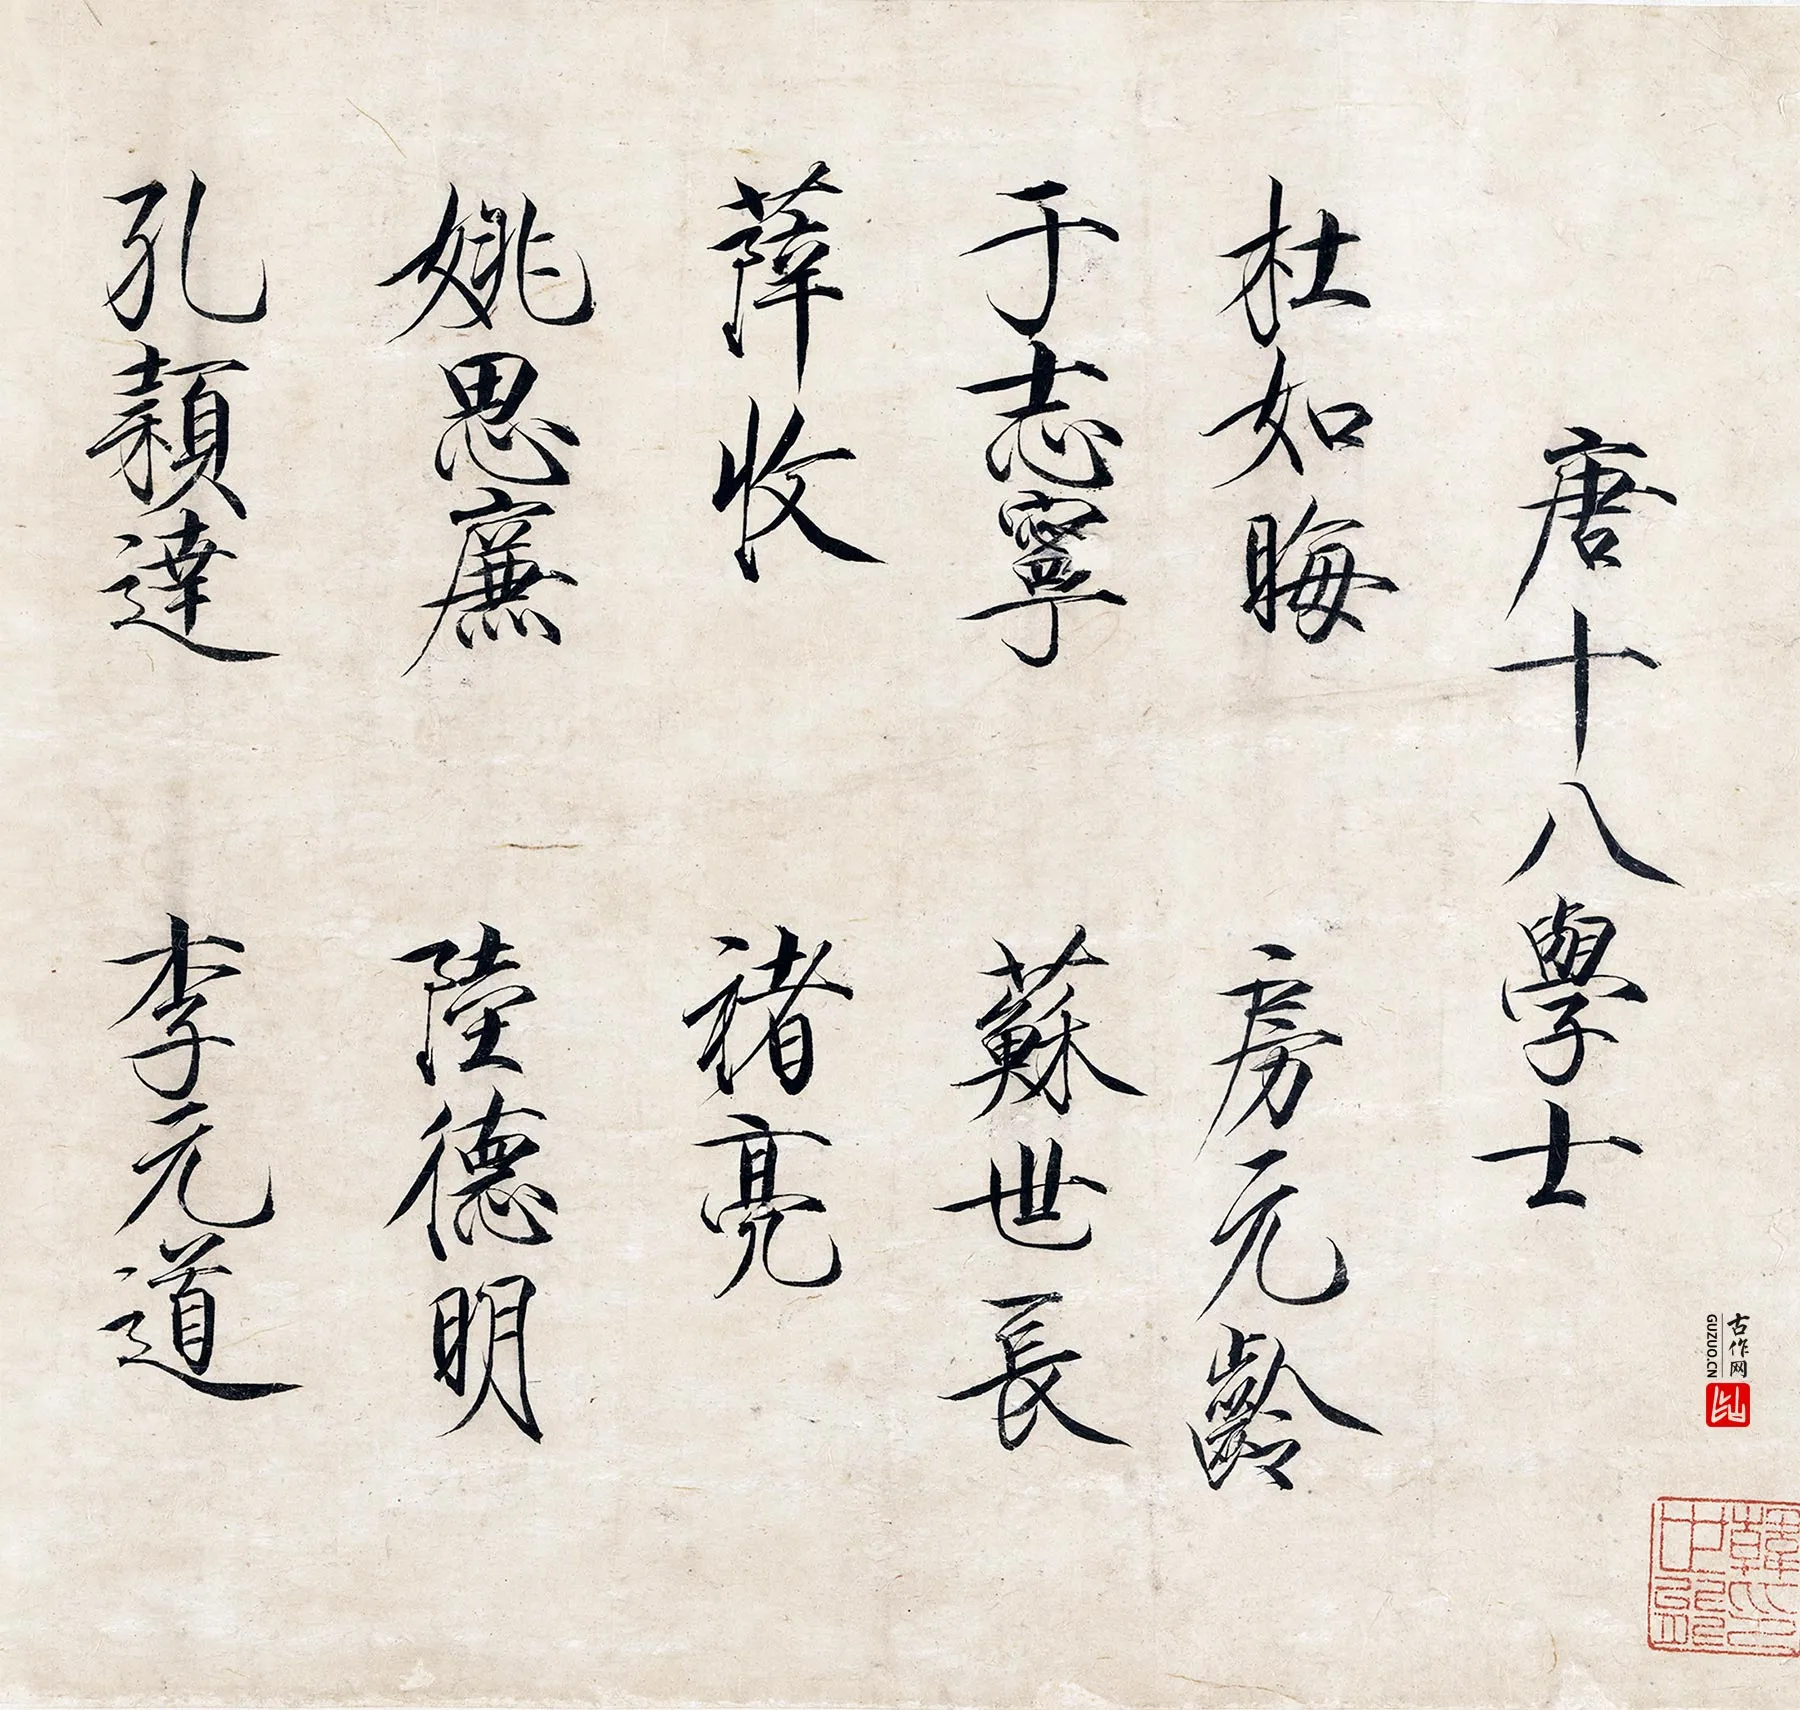 唐十八學士
杜如晦　房元齡
于志寧　蘇世長
薛收　褚亮
姚思廉　陸德明
孔穎達　李元道
古作网
GUZUO.CN